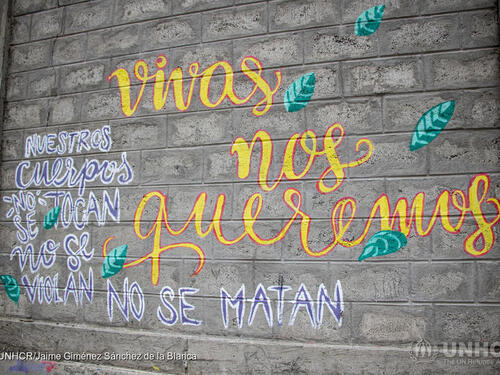 vivas
nos
queremos
NUESTROS
cuerpos
NO SE TOCAN
NO SE
VIOLAN NO SE MATAN
UNHCR/Jaime Giménez Sánchez de la Blanca
UNHCR
The UN Refugee Agency